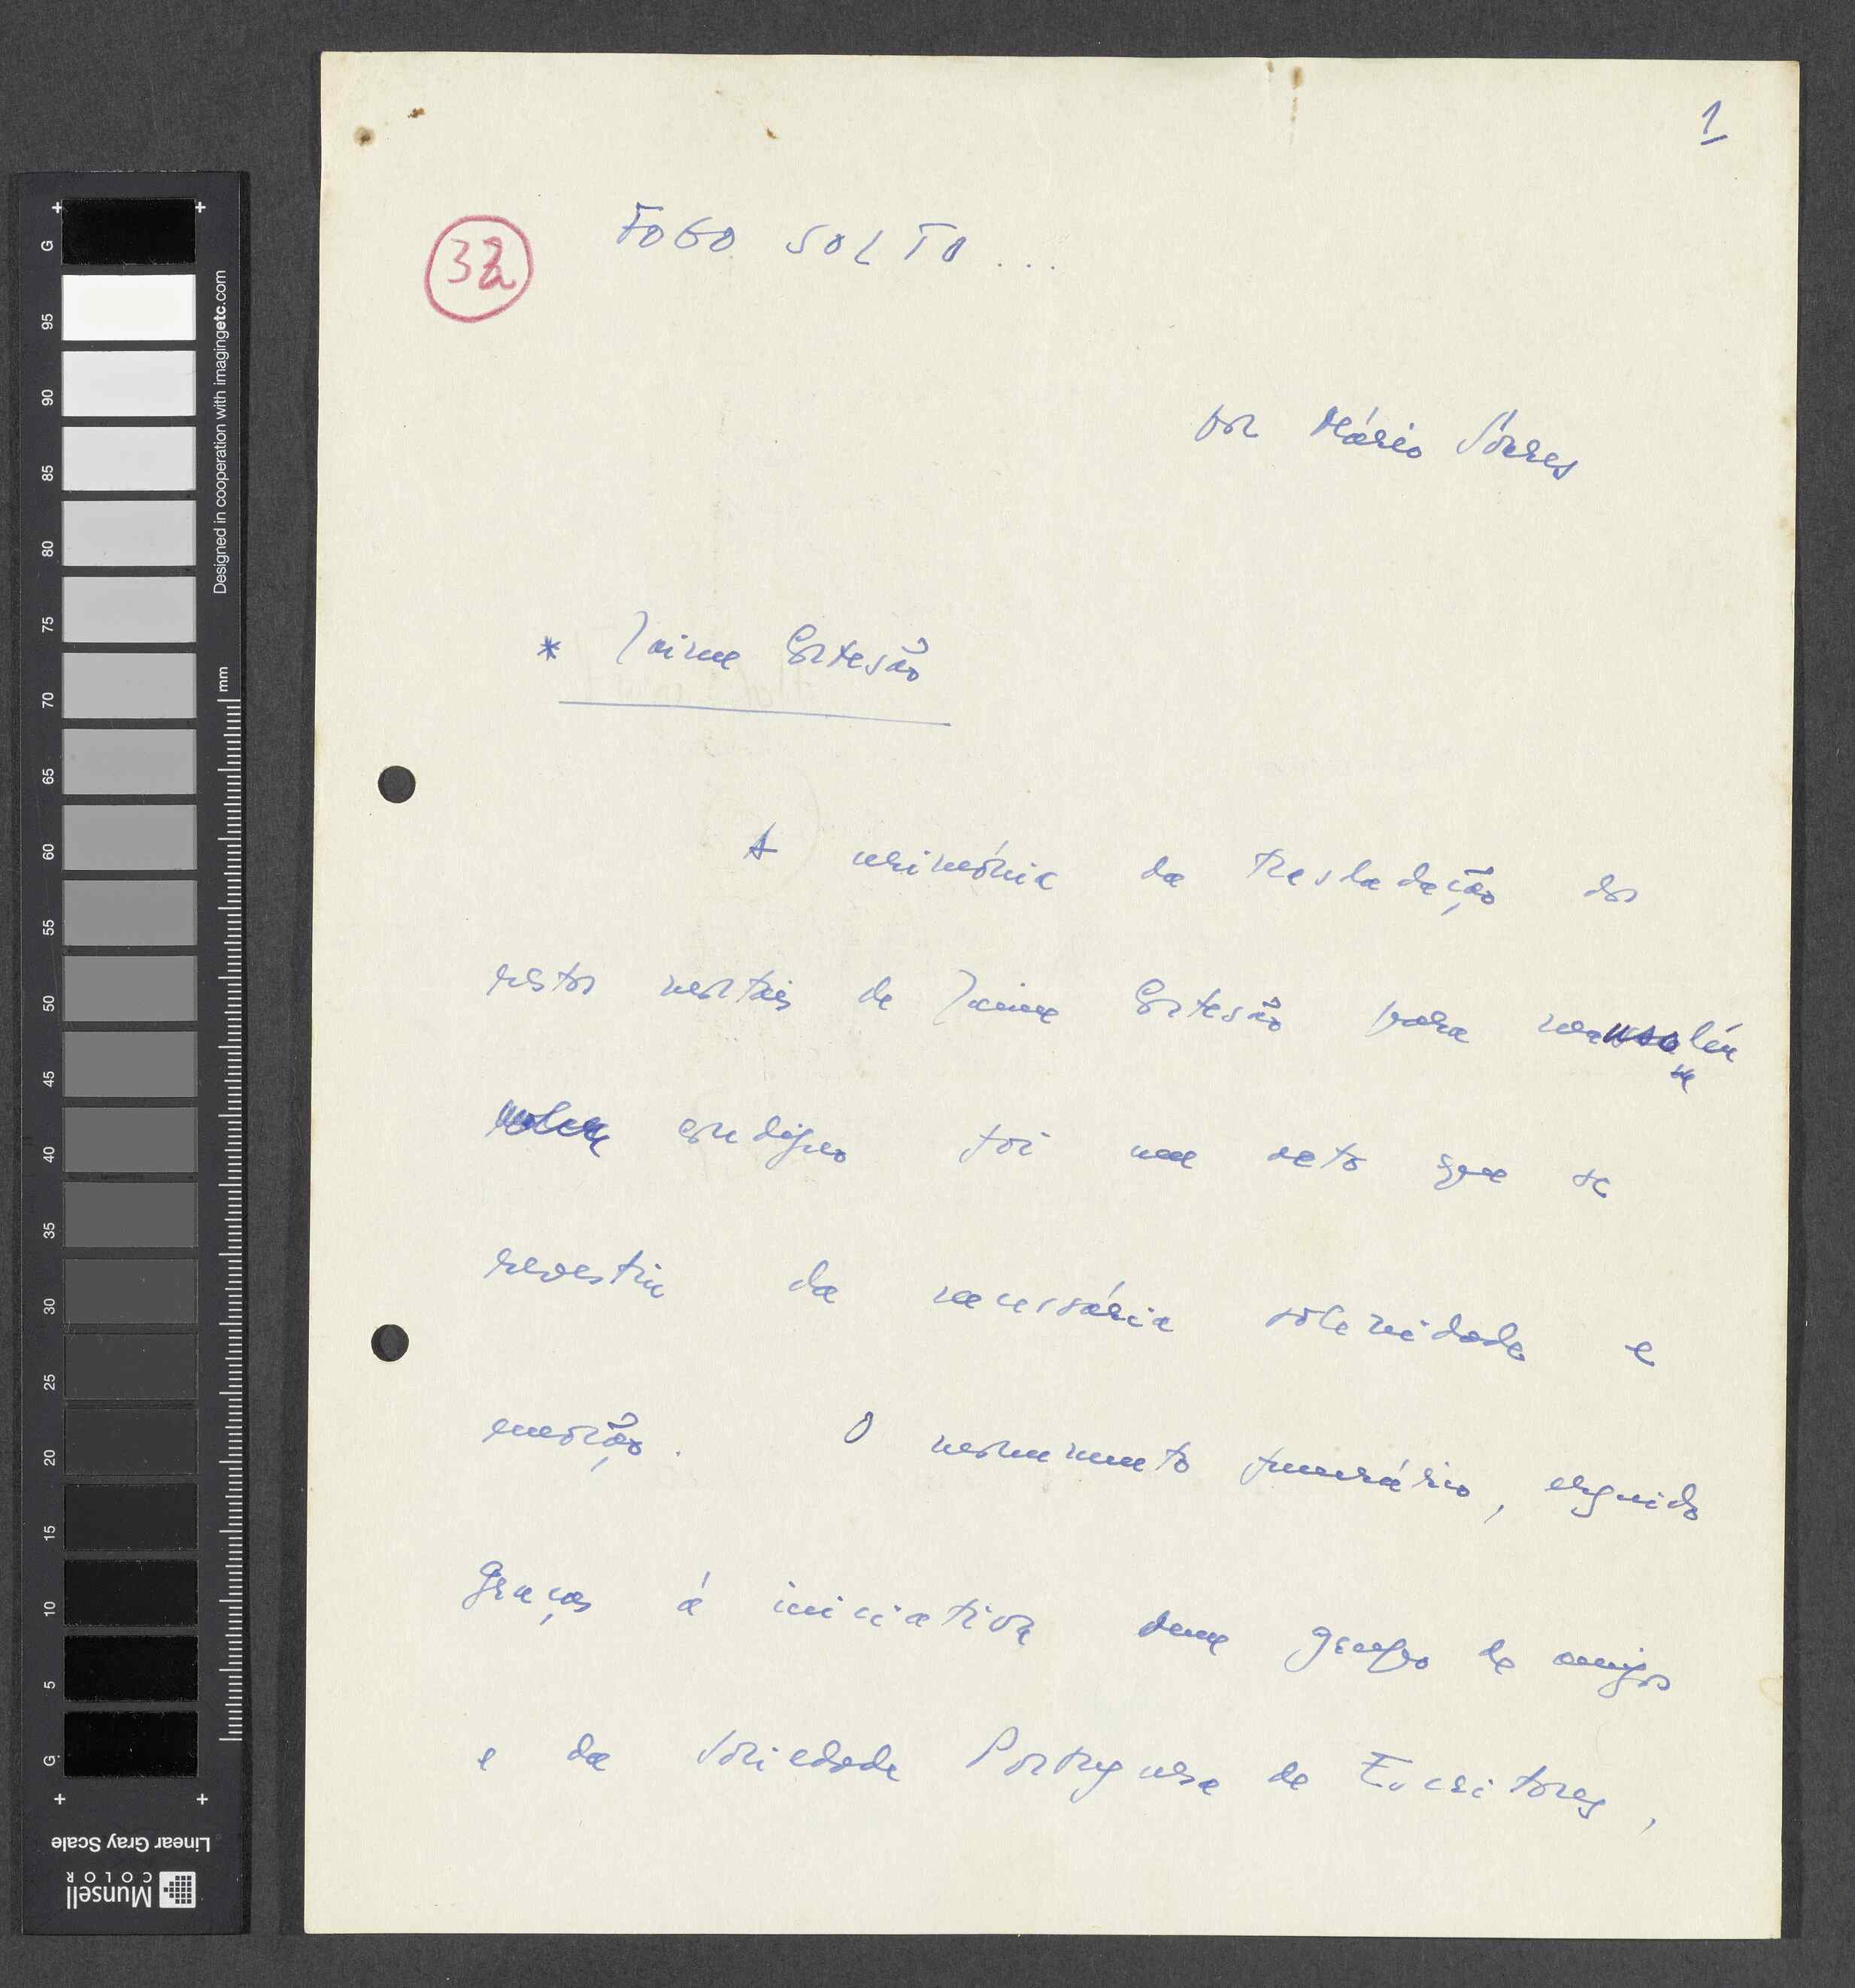 1
32
FOGO SOLTO...
por Mário Soares
* Jaime Cortesão
A cerimónia da trasladação dos
restos mortais de Jaime Cortesão para mausoléu
condigno foi um acto que se
revestiu da necessária solenidade e
emoção. O monumento funerário, erguido
graças á iniciativa dum grupo de amigos
e da Sociedade Portuguesa de Escritores,
G
95
90
85
80
75
70
65
60
55
50
45
40
35
30
25
20
15
10
5
G
Designed in cooperation with imagingetc.com
mm
Linear Gray Scale
Munsell
COLOR